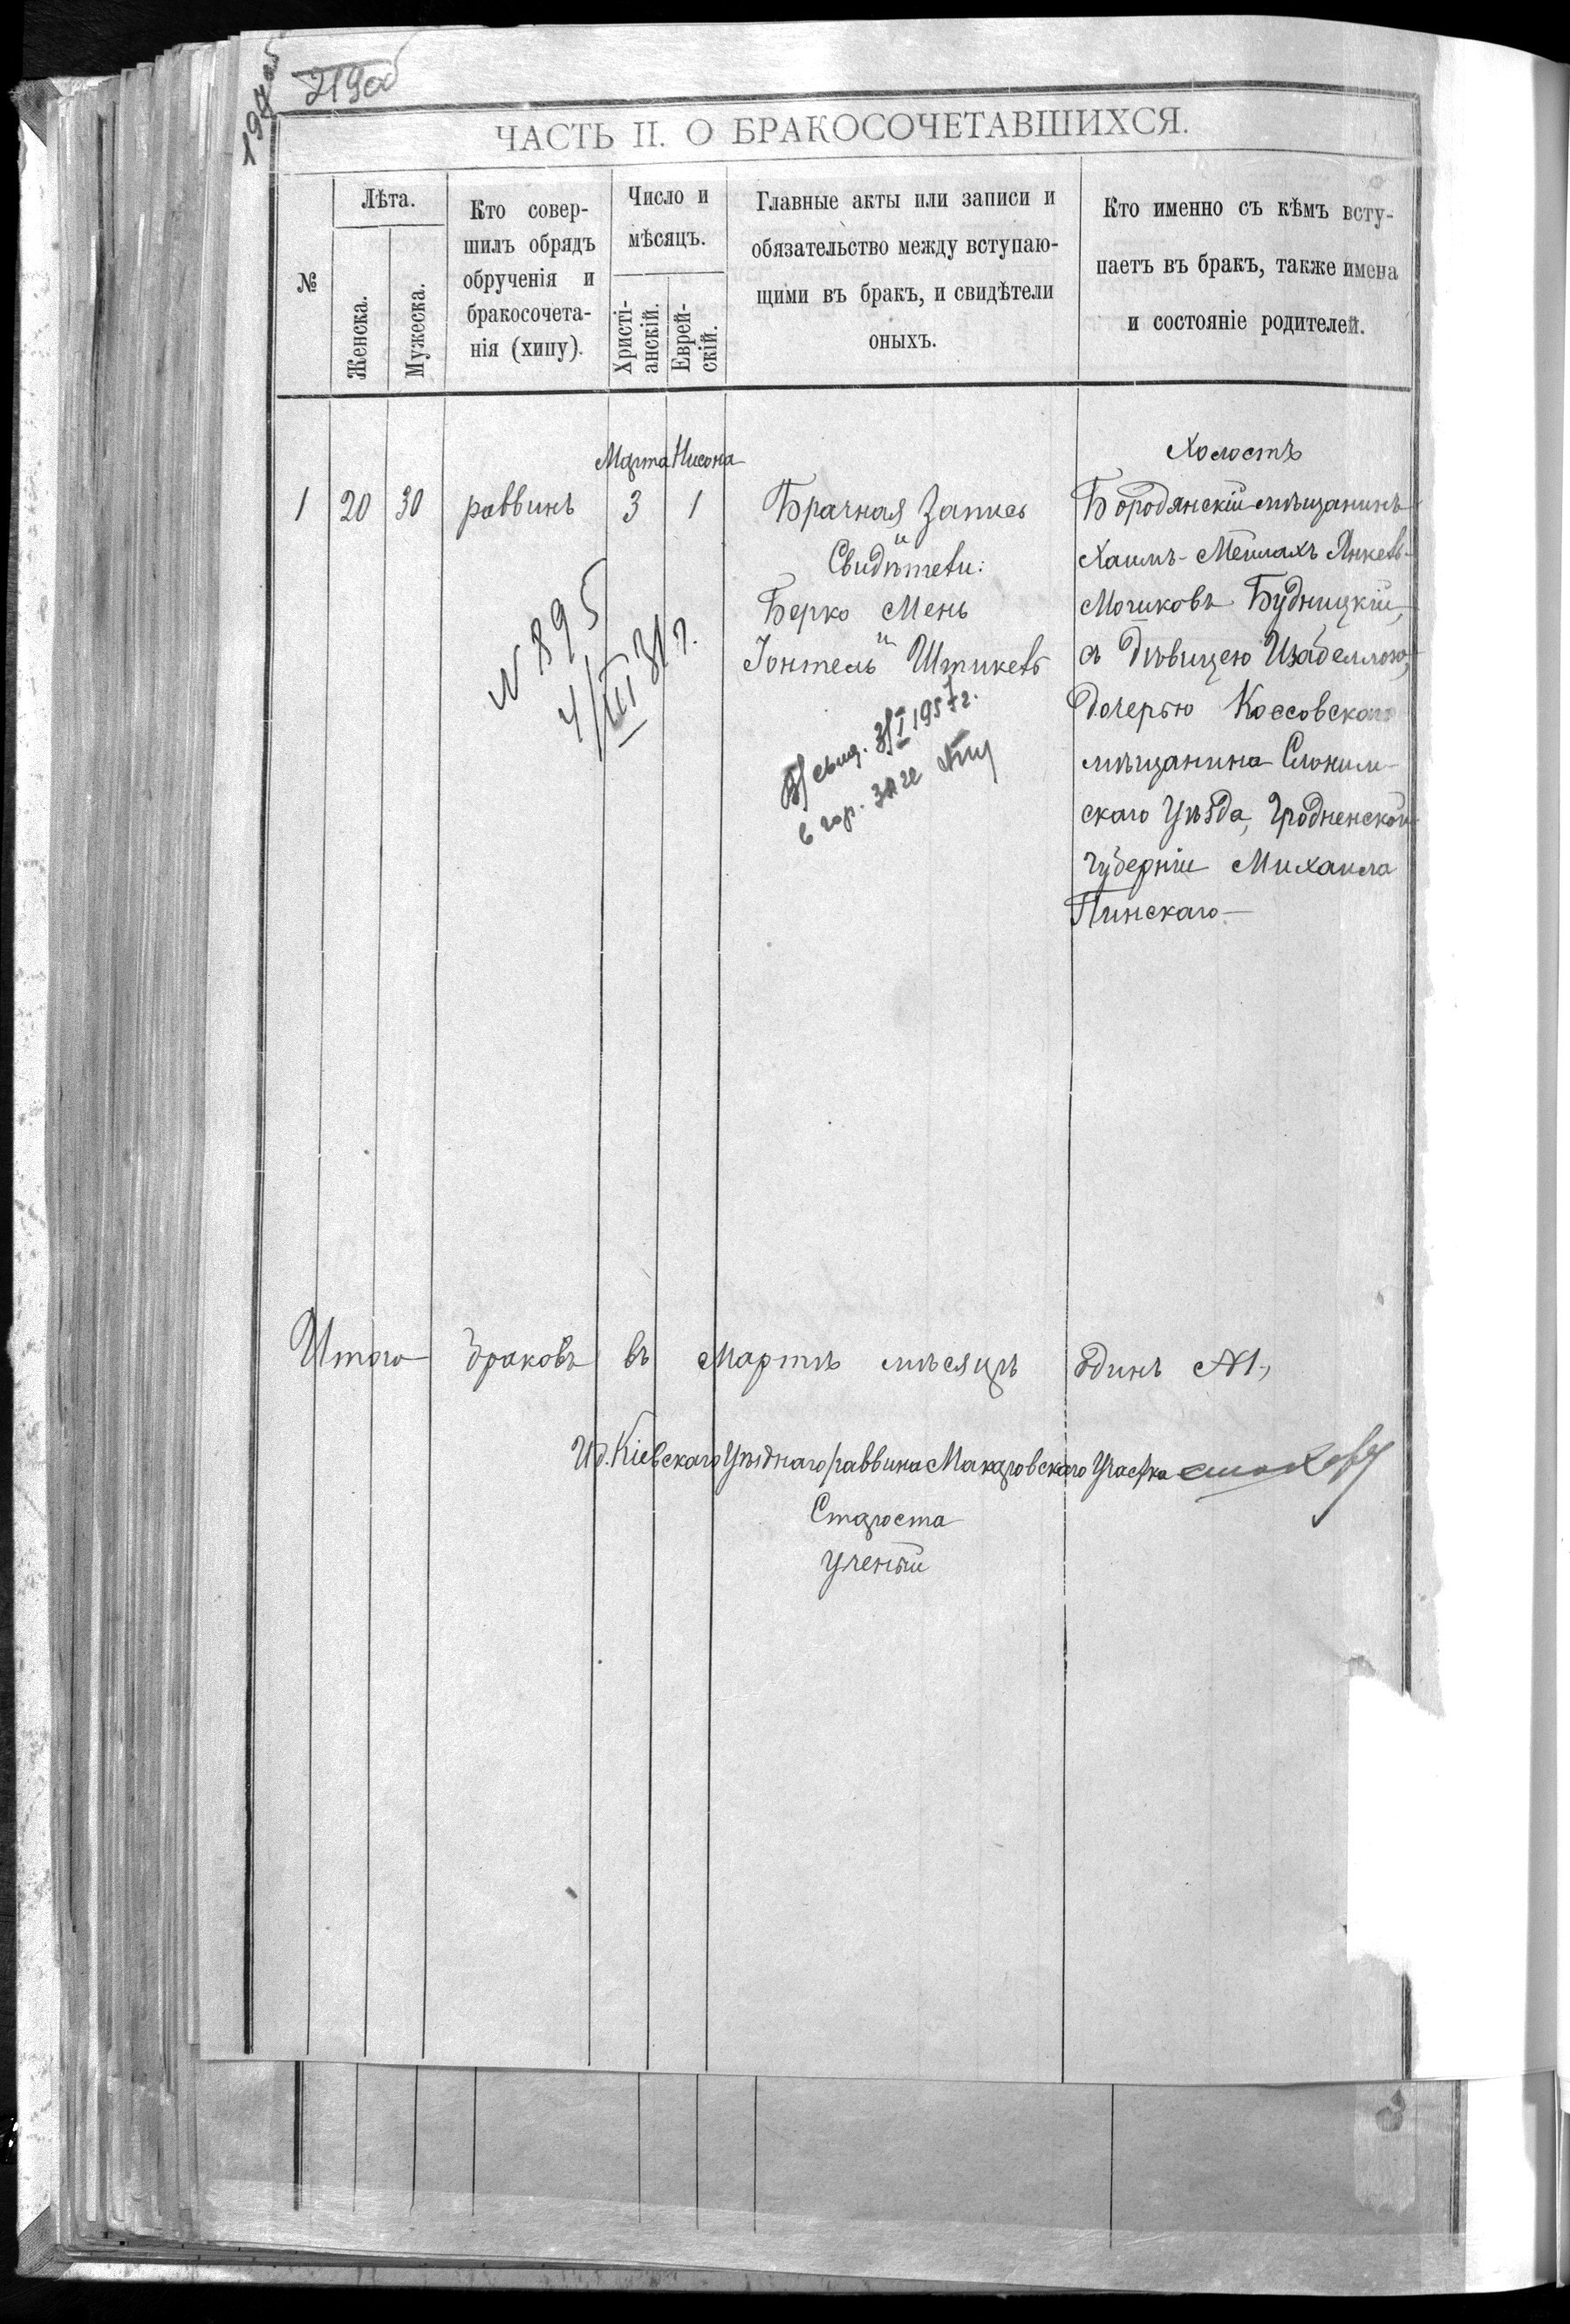 219об
ЧАСТЬ II. О БРАКОСОЧЕТАВШИХСЯ.
№
Лѣта.
Женска.
Мужеска.
Кто совер-
шилъ обрядъ
обрученія и
бракосочета-
нія (хипу).
Число и
мѣсяцъ.
Христі-
анскій.
Еврей-
скій.
Главные акты или записи и
обязательство между вступаю-
щими въ бракъ, и свидѣтели
оныхъ.
Кто именно съ кѣмъ всту-
паетъ въ бракъ, также имена
и состояніе родителей.
Марта Нисона
1 20 30 раввинъ 3 1
Брачная Запись
и
Свидѣтели:
Берко Мень
и
Іонтель Штикель
Холостъ
Бородянскій мѣщанинъ
Хаимъ-Мейлахъ Янкель-
Мошковъ Будницкій,
съ дѣвицею Изабеллою,
дочерью Коссовскаго
мѣщанина Слоним-
скаго Уѣзда, Гродненской
губерніи Михаила
Пинскаго
N 895
4/III 31 г.
свид. 3/I 1957г.
в гор. загс
Итого браковъ въ Мартѣ мѣсяцѣ одинъ №1,
Ид. Кіевскаго Уѣзднаго раввина Макаровскаго Участка
Староста
Ученый